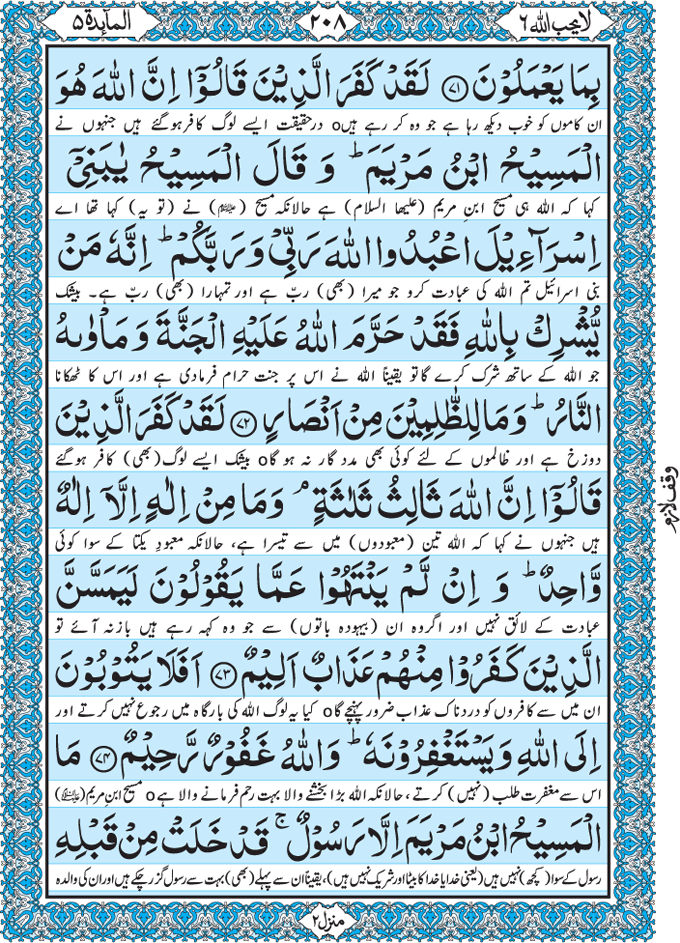 لا يحب الله ٦
٢٠٨
المآئدة ٥
بِمَا يَعْمَلُوْنَ ﴿٧١﴾ لَقَدْ كَفَرَ الَّذِيْنَ قَالُوْۤا اِنَّ اللّٰهَ هُوَ
ان کاموں کو خوب دیکھ رہا ہے جو وہ کر رہے ہیںo درحقیقت ایسے لوگ کافر ہوگئے ہیں جنہوں نے
الْمَسِيْحُ ابْنُ مَرْيَمَ ؕ وَ قَالَ الْمَسِيْحُ يٰبَنِيْۤ
کہا کہ اللہ ہی مسیح ابنِ مریم (علیہا السلام) ہے حالانکہ مسیح (علیہ السلام) نے (تو یہ) کہا تھا اے
اِسْرَآءِيْلَ اعْبُدُوا اللّٰهَ رَبِّيْ وَ رَبَّكُمْ ؕ اِنَّهٗ مَنْ
بنی اسرائیل تم اللہ کی عبادت کرو جو میرا (بھی) ربّ ہے اور تمہارا (بھی) ربّ ہے۔ بیشک
يُّشْرِكْ بِاللّٰهِ فَقَدْ حَرَّمَ اللّٰهُ عَلَيْهِ الْجَنَّةَ وَ مَاْوٰىهُ
جو اللہ کے ساتھ شرک کرے گا تو یقیناً اللہ نے اس پر جنت حرام فرما دی ہے اور اس کا ٹھکانا
النَّارُ ؕ وَ مَا لِلظّٰلِمِيْنَ مِنْ اَنْصَارٍ ﴿٧٢﴾ لَقَدْ كَفَرَ الَّذِيْنَ
دوزخ ہے اور ظالموں کے لئے کوئی بھی مدد گار نہ ہو گاo بیشک ایسے لوگ (بھی) کافر ہوگئے
قَالُوْۤا اِنَّ اللّٰهَ ثَالِثُ ثَلٰثَةٍ ۘ وَ مَا مِنْ اِلٰهٍ اِلَّاۤ اِلٰهٌ
وقف لازم
ہیں جنہوں نے کہا کہ اللہ تین (معبودوں) میں سے تیسرا ہے، حالانکہ معبودِ یکتا کے سوا کوئی
وَّاحِدٌ ؕ وَ اِنْ لَّمْ يَنْتَهُوْا عَمَّا يَقُوْلُوْنَ لَيَمَسَّنَّ
عبادت کے لائق نہیں اور اگر وہ ان (بیہودہ باتوں) سے جو وہ کہہ رہے ہیں باز نہ آئے تو
الَّذِيْنَ كَفَرُوْا مِنْهُمْ عَذَابٌ اَلِيْمٌ ﴿٧٣﴾ اَفَلَا يَتُوْبُوْنَ
ان میں سے کافروں کو دردناک عذاب ضرور پہنچے گاo کیا یہ لوگ اللہ کی بارگاہ میں رجوع نہیں کرتے اور
اِلَى اللّٰهِ وَ يَسْتَغْفِرُوْنَهٗ ؕ وَ اللّٰهُ غَفُوْرٌ رَّحِيْمٌ ﴿٧٤﴾ مَا
اس سے مغفرت طلب (نہیں) کرتے، حالانکہ اللہ بڑا بخشنے والا بہت رحم فرمانے والا ہےo مسیح ابنِ مریم (علیہما السلام)
الْمَسِيْحُ ابْنُ مَرْيَمَ اِلَّا رَسُوْلٌ ۚ قَدْ خَلَتْ مِنْ قَبْلِهِ
رسول کے سوا (کچھ) نہیں ہیں (یعنی خدا یا خدا کا بیٹا اور شریک نہیں ہیں)، یقیناً ان سے پہلے (بھی) بہت سے رسول گزر چکے ہیں اور ان کی والدہ
منزل ٢